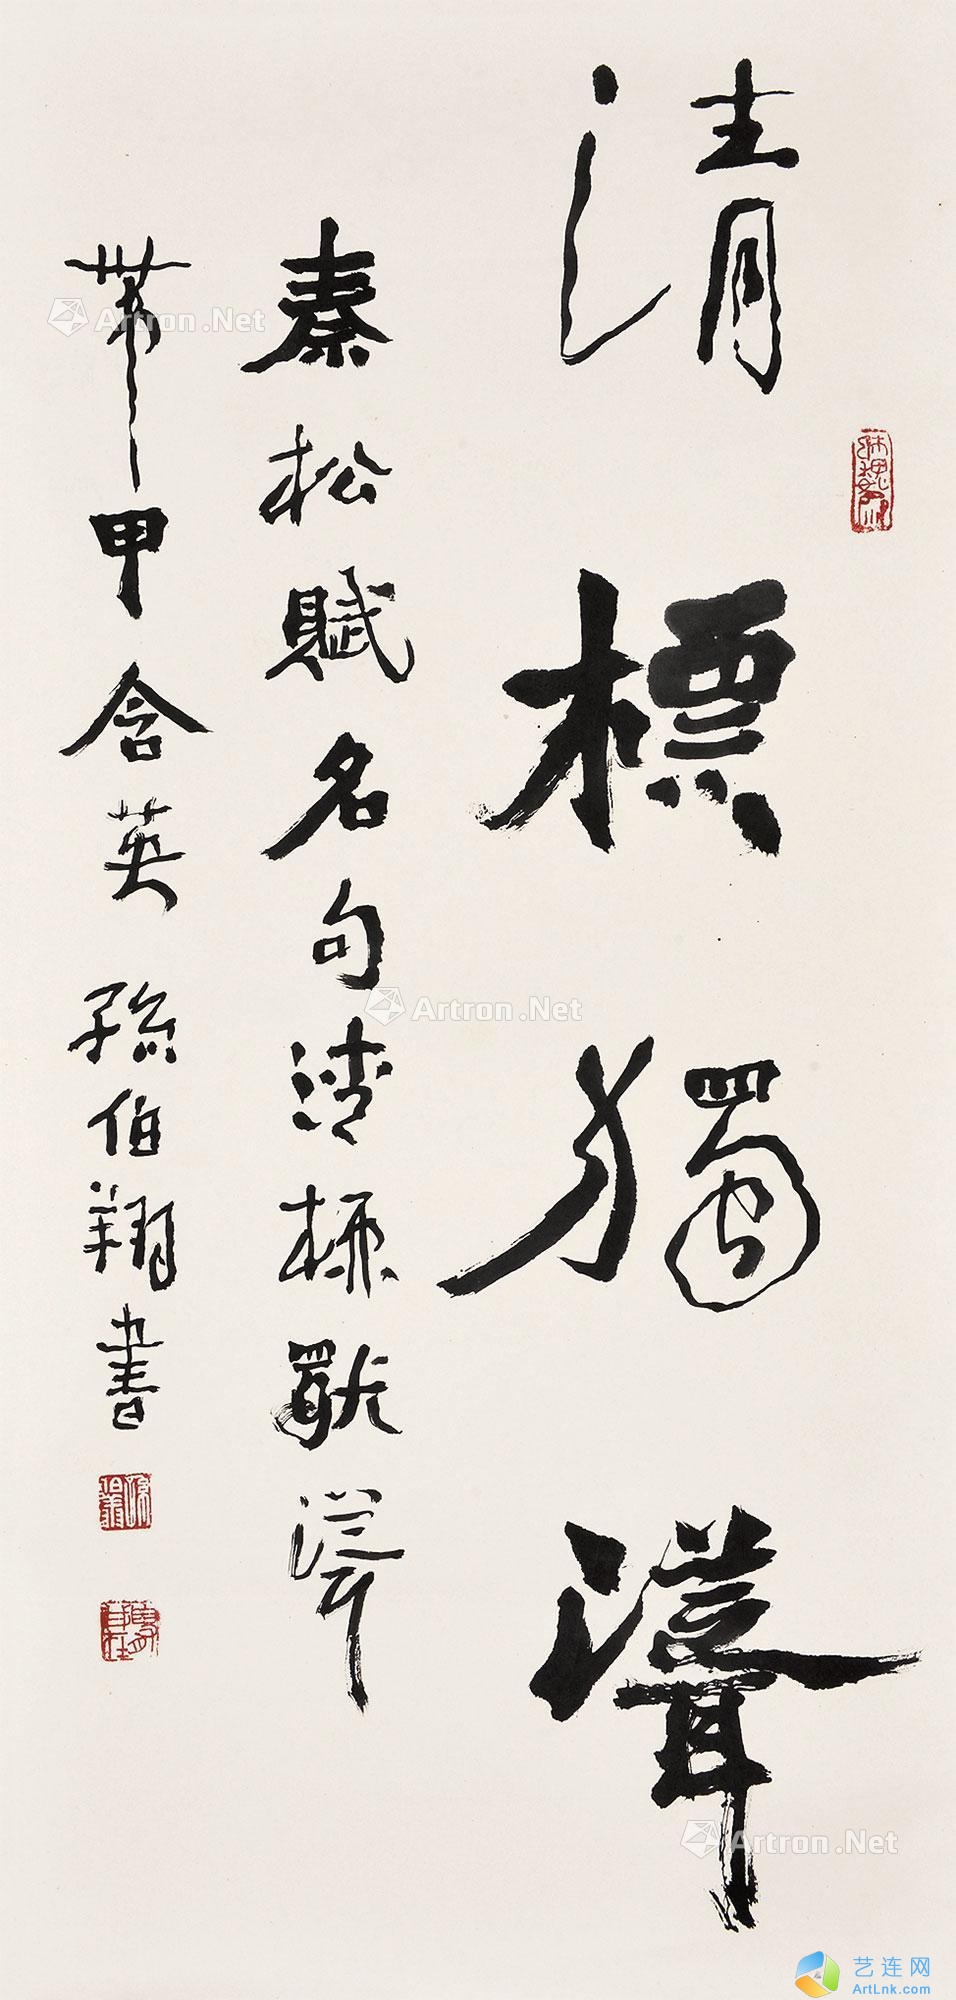 清標獨聳
秦松賦名句清標獨聳
帶甲含英 孫伯翔書
Artron.Net
Artron.Net
Artron.Net
艺连网
ArtLnk.com